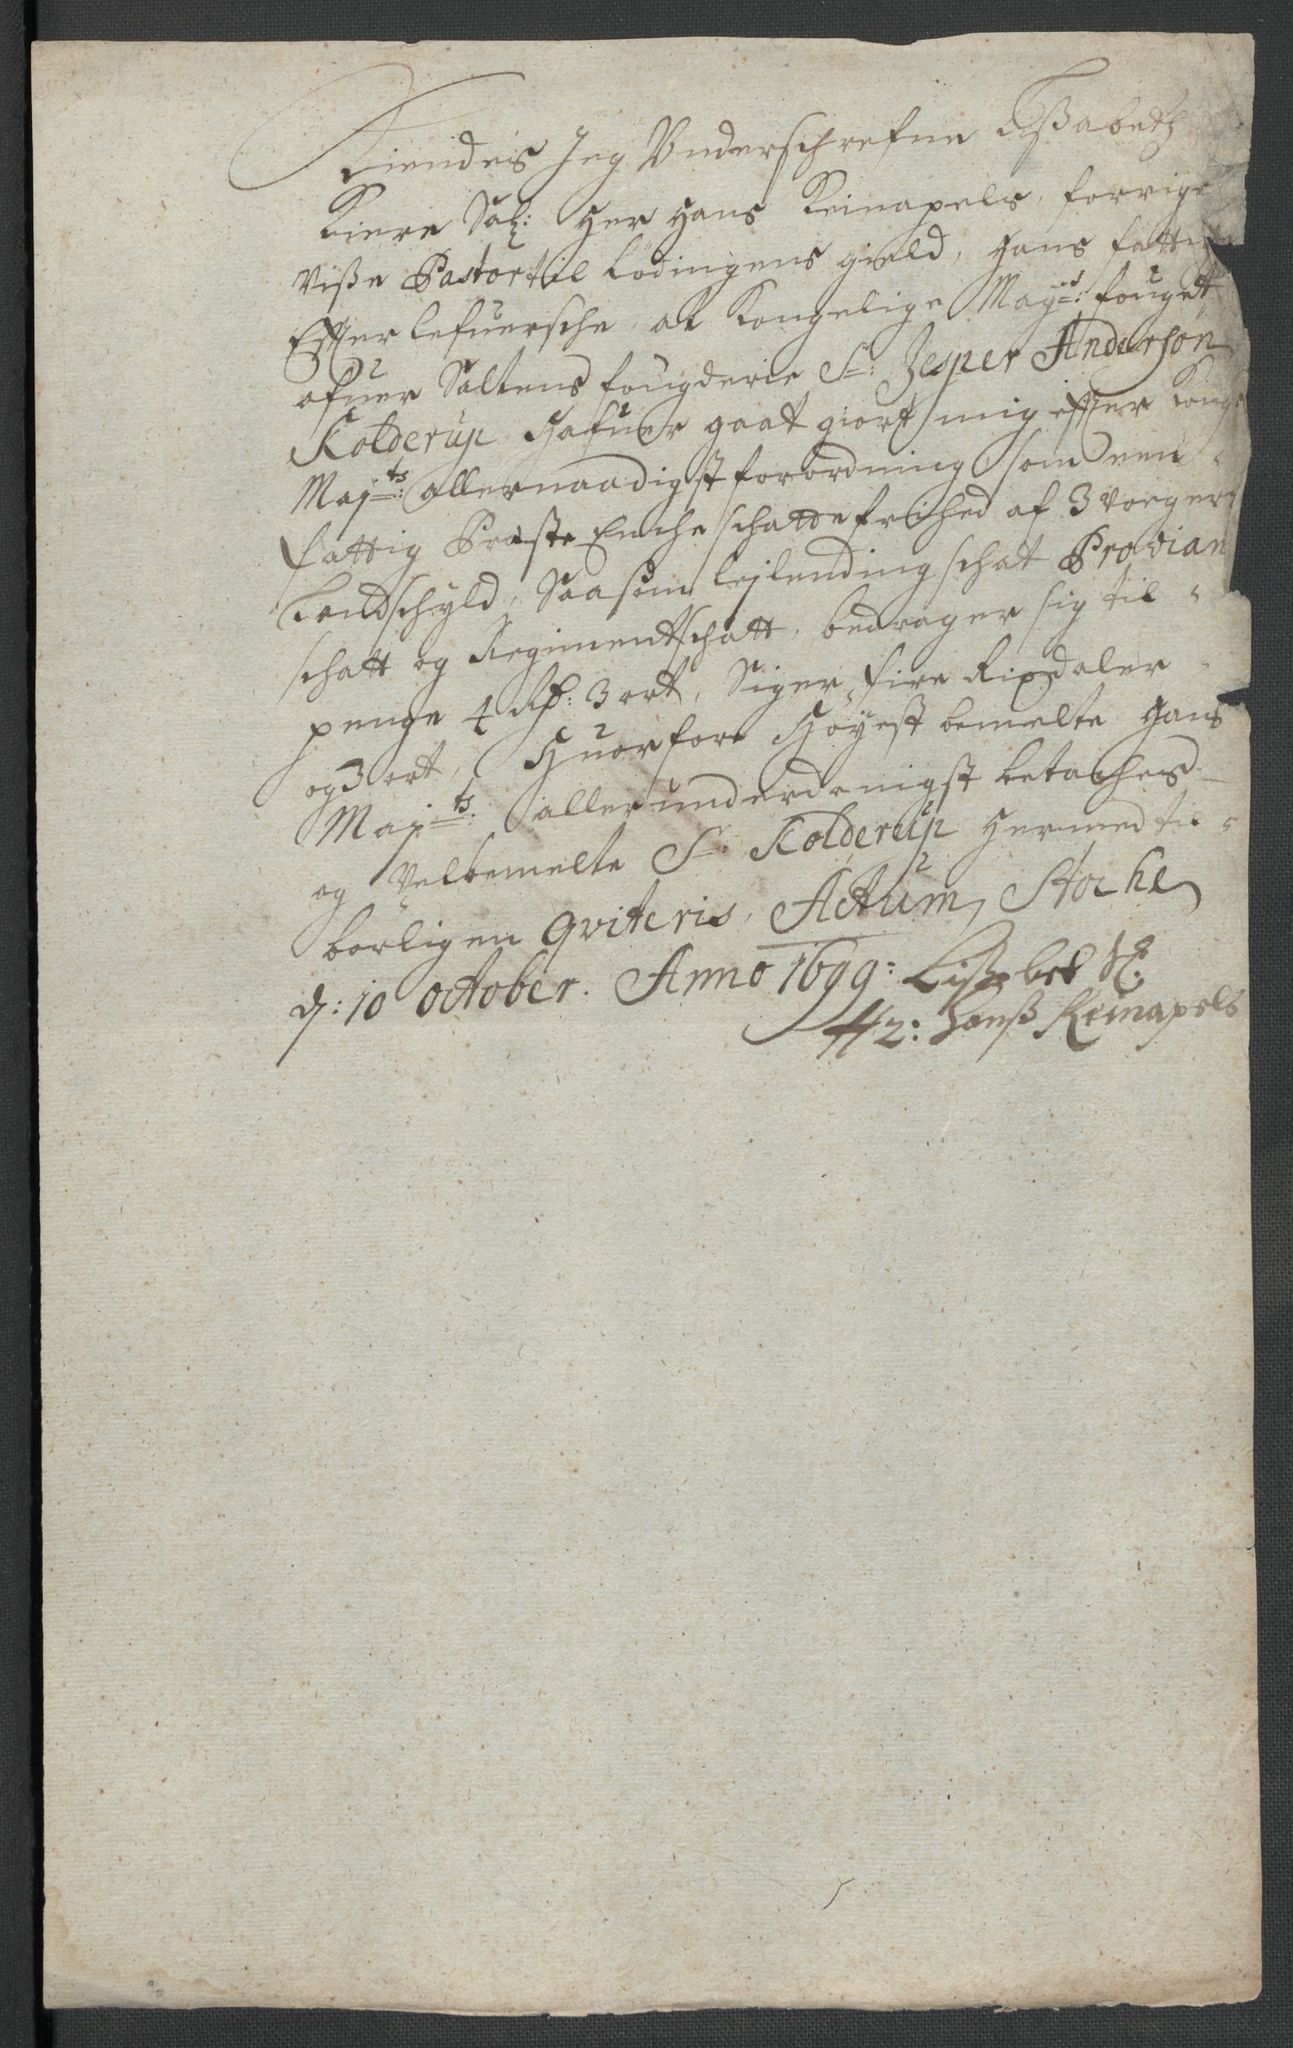 Kiendes Jeg Vnderschrefne Lißabeth
Kiere Sal: Her Hans Reinapels, forrige
Viße Pastor til Lødingens gield, Hans fattig
Effterlefuersche, at Kongelige Mayts: fougett
ofuer Saltens fougderie Sr: Jesper Andersøn
Kolderup Hafuer gaat giort mig effter Kongl
Majts: allernaadigst forordning som een
fattig Præste Enche schatte frihed af 3 voger
Landschyld, Saasom Leylending schat Provian
schatt og Regimentschatt, bedrager sig til
penge 4 Rd: 3 ort, Siger fire Rixdaler
og 3 ort, Huorfore Høyest bemelte Hans
Majts: allerunderdenigst betaches
og Velbemelte Sr: Kolderup Hermed til
børligen qviteris, Actum, Stoche
d: 10 October. Anno 1699: Lißabet
Hr: Hanß Reinapels